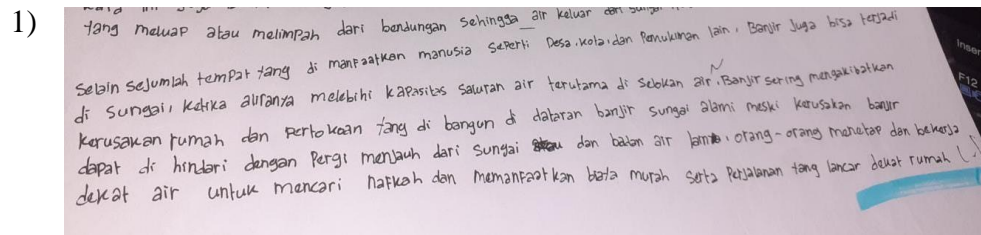 1)
yang meluap atau melimpah dari bendungan sehingga air keluar dari sungai
Selain sejumlah tempat yang di manfaatkan manusia seperti Desa, kota, dan Pemukiman lain, Banjir Juga bisa terjadi
di sungai, ketika alirannya melebihi kapasitas saluran air terutama di sebkan air. Banjir sering mengakibatkan
kerusakan rumah dan pertokoan yang di bangun di dataran banjir sungai alami meski kerusakan banjir
dapat di hindari dengan Pergi menjauh dari sungai dan badan air orang-orang menetap dan bekerja
dekat air untuk mencari nafkah dan memanfaatkan biaya murah serta Perjalanan yang lancar dekat rumah (.)
Inser
F12